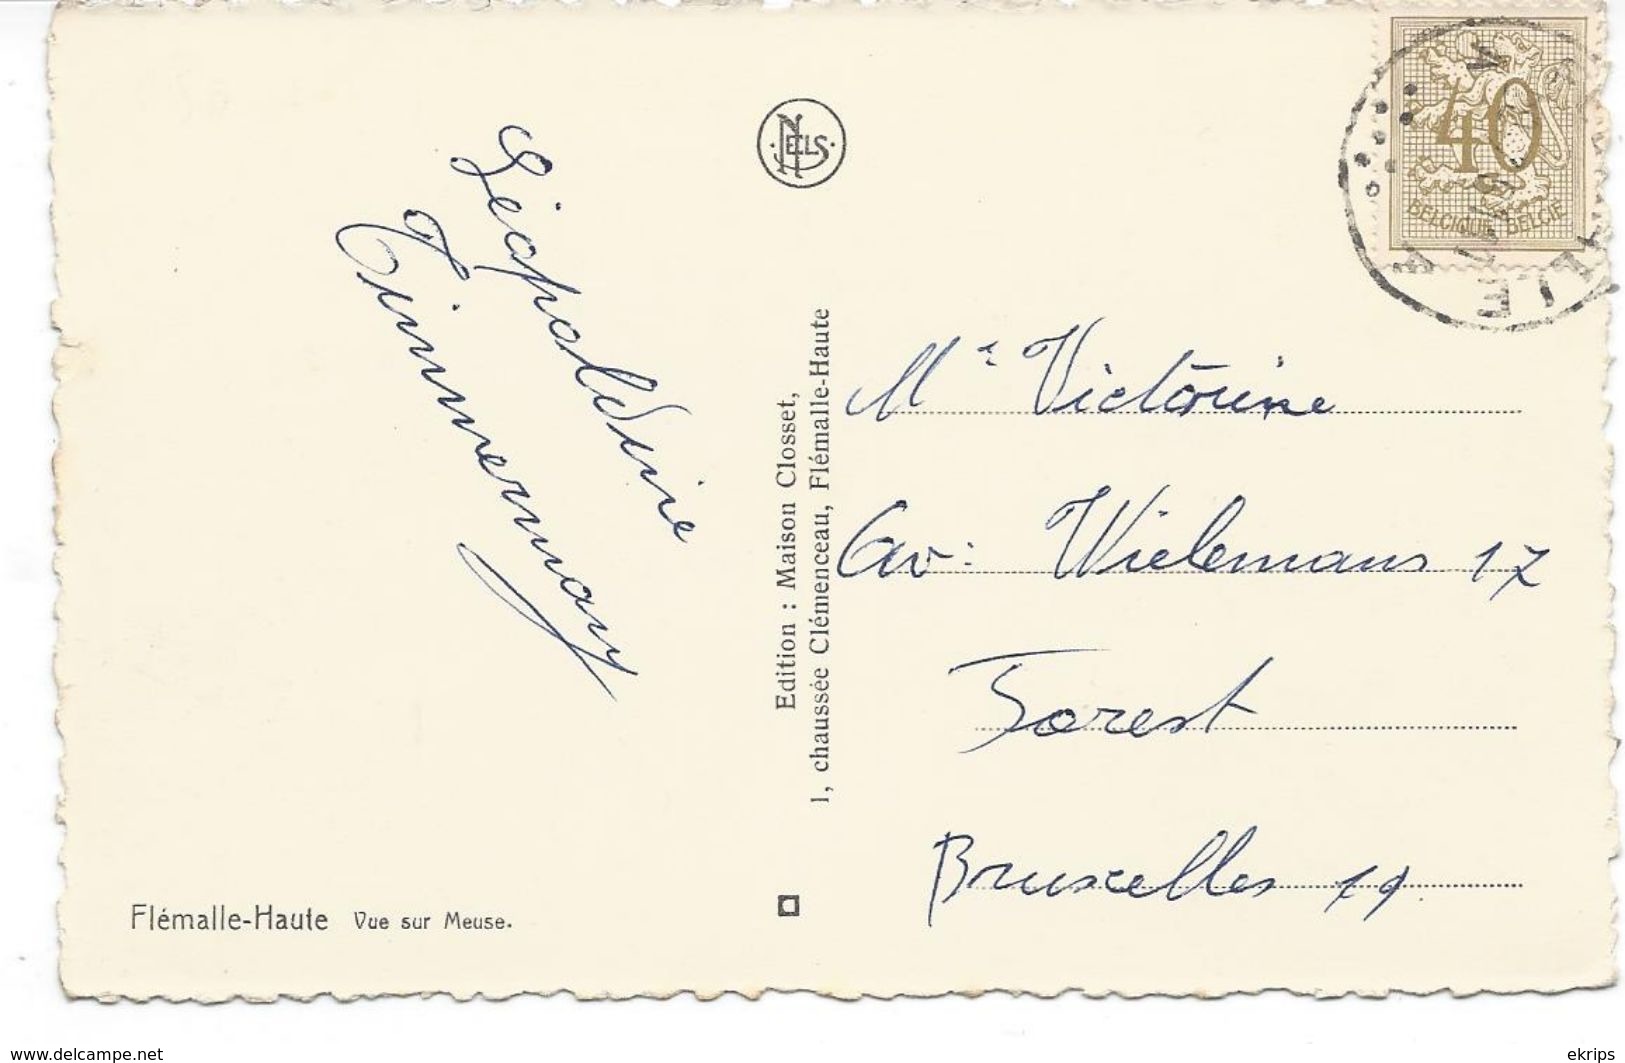 Léopoldine
Timmermans
NELS
Edition : Maison Closset,
1, chaussée Clémenceau, Flémalle-Haute
Flémalle-Haute Vue sur Meuse.
40
BELGIQUE BELGIË
Me Victorine
Av: Wielemans 17
Forest
Bruxelles 19.
www.delcampe.net
ekrips